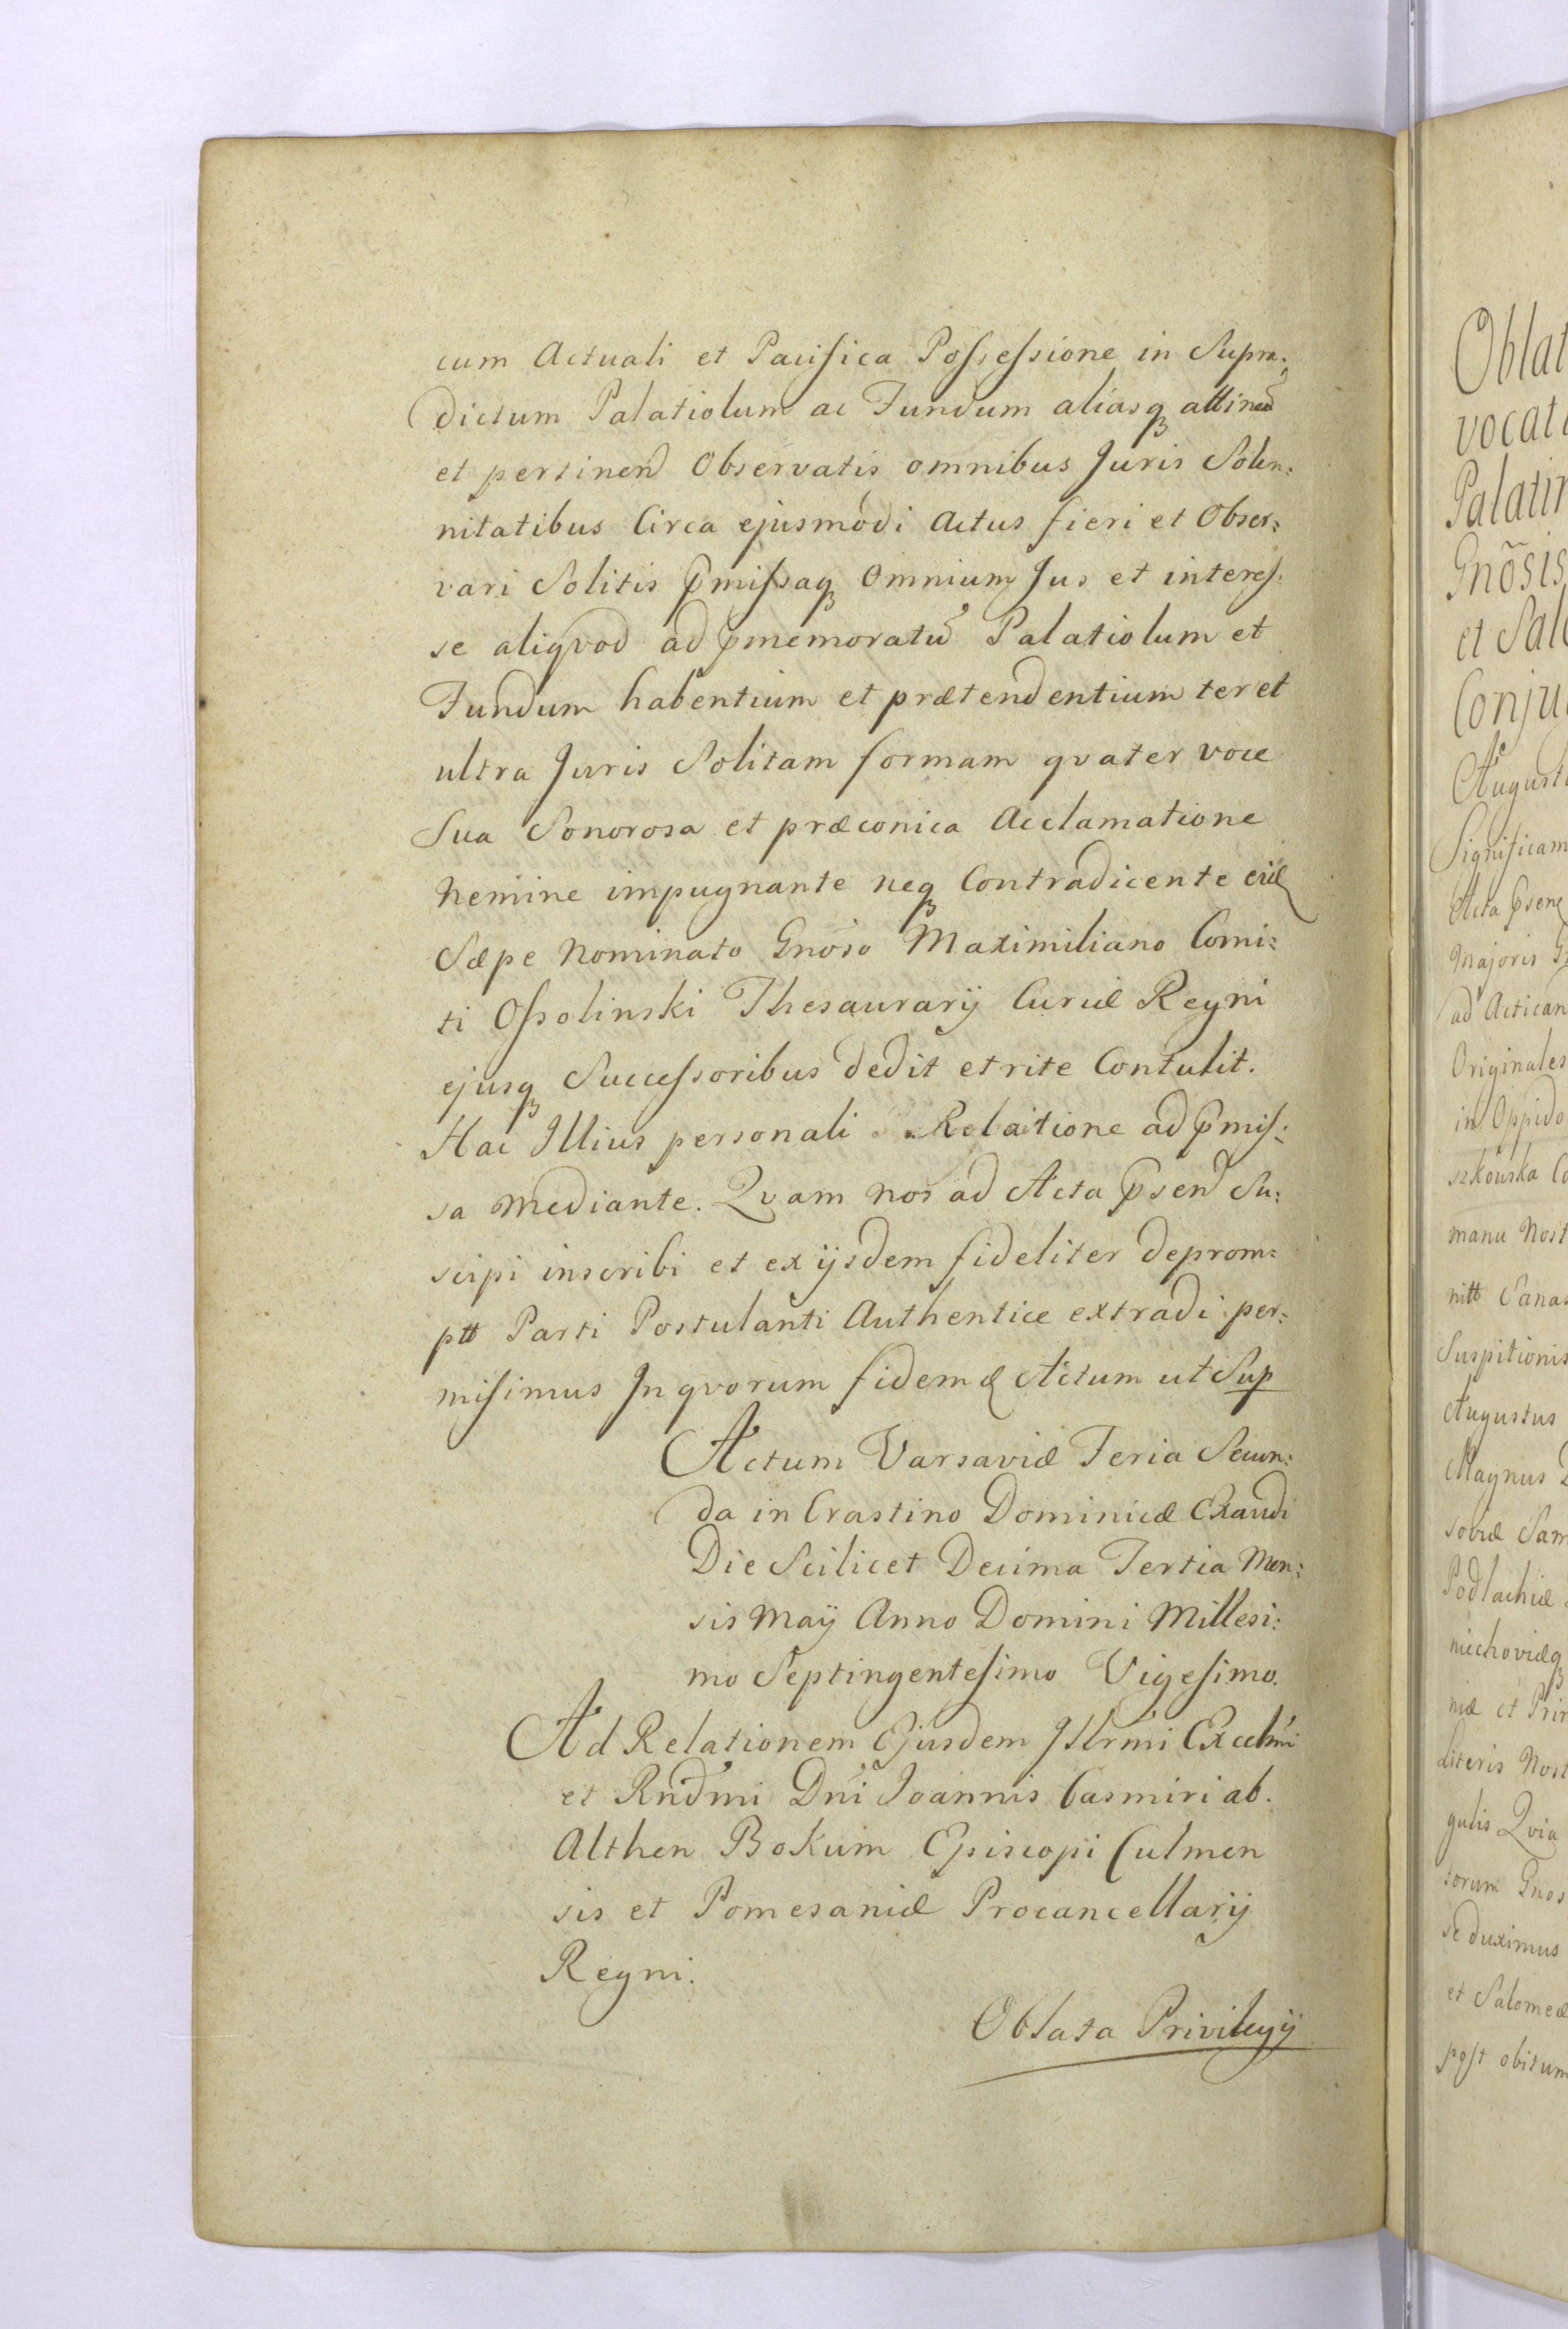 cum Actuali et Pacifica Possessione in Supra:
dictum Palatiolum ac Fundum aliasq attinen
et pertinen Observatis omnibus Juris Solen:
nitatibus Circa ejusmodi Actus fieri et Obser:
vari Solitis Pmissaq Omnium Jus et interes:
se aliqvod ad pmemoratũ Palatiolum et
Fundum habentium et prætendentium ter et
ultra Juris Solitam formam qvater voce
Sua Sonorosa et præconica Acclamatione
Nemine impugnante neq Contradicente eid
Sæpe Nominato Gnoso Maximiliano Comi:
ti Ossolinski Thesaurarij Curiæ Regni
ejusq Successoribus dedit et rite Contulit.
Hac Illius personali Relatione ad Pmis:
sa mediante. Qvam nos ad Acta Psen Su:
scipi inscribi et ex ijsdem fideliter deprom:
ptt Parti Postulanti Authentice extradi per:
misimus In qvorum fidem & Actum ut Sup
Actum Varsaviæ Feria Secun:
da in Crastino Dominicæ Exaudi
Die Scilicet Decima Tertia Men:
sis Maij Anno Domini Millesi:
mo Septingentesimo Vigesimo.
Ad Relationem Ejusdem Illrmi Excelmi
et Rndmi Dni Joannis Casmiri ab.
Althen Bokum Episcopi Culmen
sis et Pomesaniæ Procancellarij
Regni.
Oblata Privilegij
Oblat
vocat
Palatin
Gnõsis
et Sal
Conju
August
Significam
Acta Psen
Majoris
ad Actican
Originales
in Oppido
szkowska
manu Nost
nitt Sana
Suspitionis
Augustus
Magnus
soviæ Sam
Podlachiæ
niechoviæq
niæ et Prin
Literis Nost
gulis Qvia
torum Gnos
se duximus
et Salomeæ
post obitum